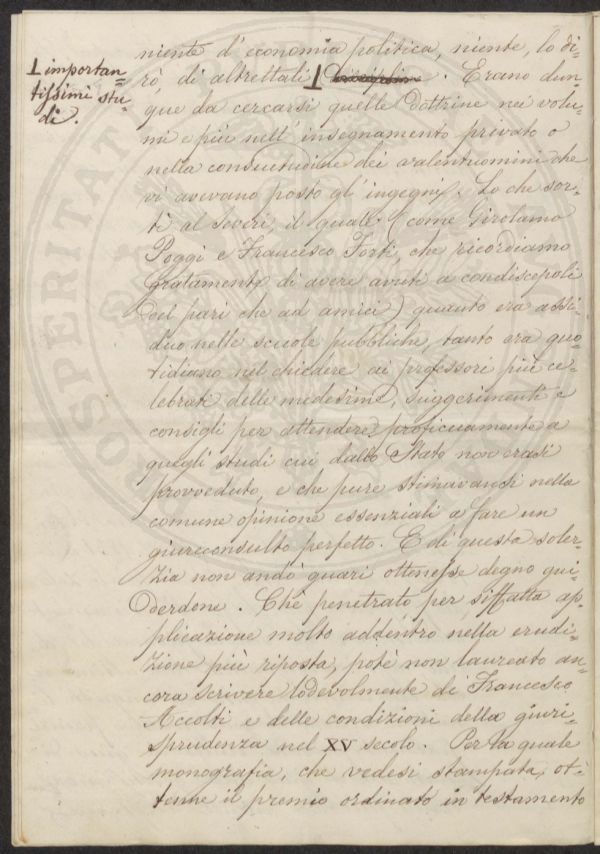 ⊥ importan-
tissimi stu-
di.
niente d'economia politica, niente, lo di-
rò, di altrettali ⊥ discipline. Erano dun-
que da cercarsi quelle dottrine nei volu-
mi e più nell'insegnamento privato o
nella consuetudine dei valentuomini che
vi avevano posto gl'ingegni. Lo che sor-
tì al Severi, il quale (come Girolamo
Poggi e Francesco Forti, che ricordiamo
gratamente di avere avuti a condiscepoli
del pari che ad amici) quanto era assi-
duo nelle scuole pubbliche, tanto era quo-
tidiano nel chiedere ai professori più ce-
lebrati delle medesime, suggerimenti e
consigli per attendere proficuamente a
quegli studi cui dallo Stato non erasi
provveduto, e che pure stimavansi nella
comune opinione essenziali a fare un
giureconsulto perfetto. E di questa soler-
zia non andò guari ottenesse degno gui-
derdone. Chè penetrato per siffatta ap-
plicazione molto addentro nella erudi-
zione più riposta, potè non laureato an-
cora scrivere lodevolmente di Francesco
Accolti e delle condizioni della giuri-
sprudenza nel XV secolo. Per la quale
monografia, che vedesi stampata, ot-
tenne il premio ordinato in testamento
PROSPERITAT